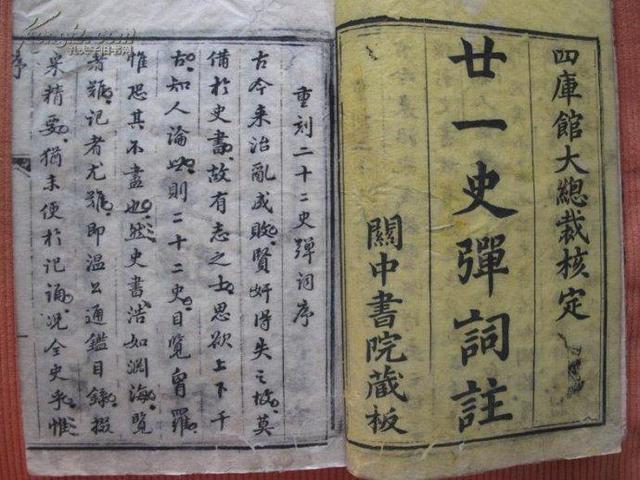 四庫館大總裁核定
廿一史彈詞註
關中書院藏板
重刻二十二史彈詞序
古今来治亂成敗賢奸得失之故莫
備於史書故有志之士思欲上下千
古知人論世則二十二史目覧胷羅
惟恐其不盡也然史書浩如淵海覧
者難記者尤難即温公通鑑目録掇
采精要猶未便於記誦况全史乎惟
序